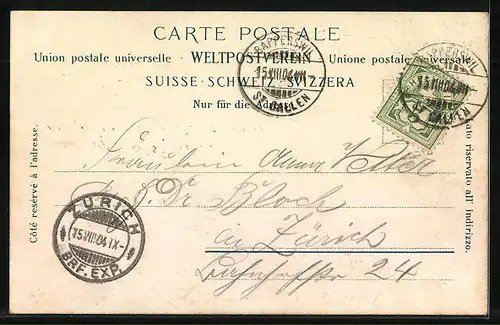 CARTE POSTALE
Union postale universelle · WELTPOSTVEREIN · Unione postale universale
SUISSE · SCHWEIZ · SVIZZERA
Nur für die Adresse
RAPPERSWIL
15.VIII.04.VII-
ST. GALLEN
RAPPERSWIL
15.VIII.04.VII-
ST. GALLEN
Côté réservé à l'adresse.
Lato riservato all' indirizzo.
Fräulein Anna
Dr Bloch
in Zürich
Bahnhofstr 24
ZÜRICH
15.VIII.04.IX-
BRF. EXP.